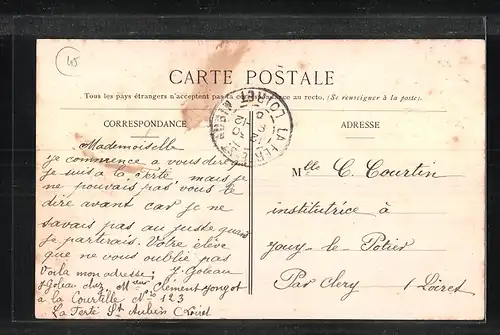 W
CARTE POSTALE
Tous les pays étrangers n'acceptent pas la correspondance au recto, (Se renseigner à la poste).
CORRESPONDANCE
Mademoiselle
je commence a vous dire que
je suis a la ferte mais je
ne pouvais pas vous le
dire avant car je ne
savais pas au juste quand
je partirais. Votre élève
que ne vous oublié pas
Voila mon adresse: J. Goleau
J Goleau chez Mr Clément
à la Courtille No 123
La Ferté St Aubin (Loiret
LA FERTE ST AUBIN (LOIRET)
ADRESSE
Mlle C. Courtin
institutrice à
Jouy-le Potier
Par Clery
(Loiret